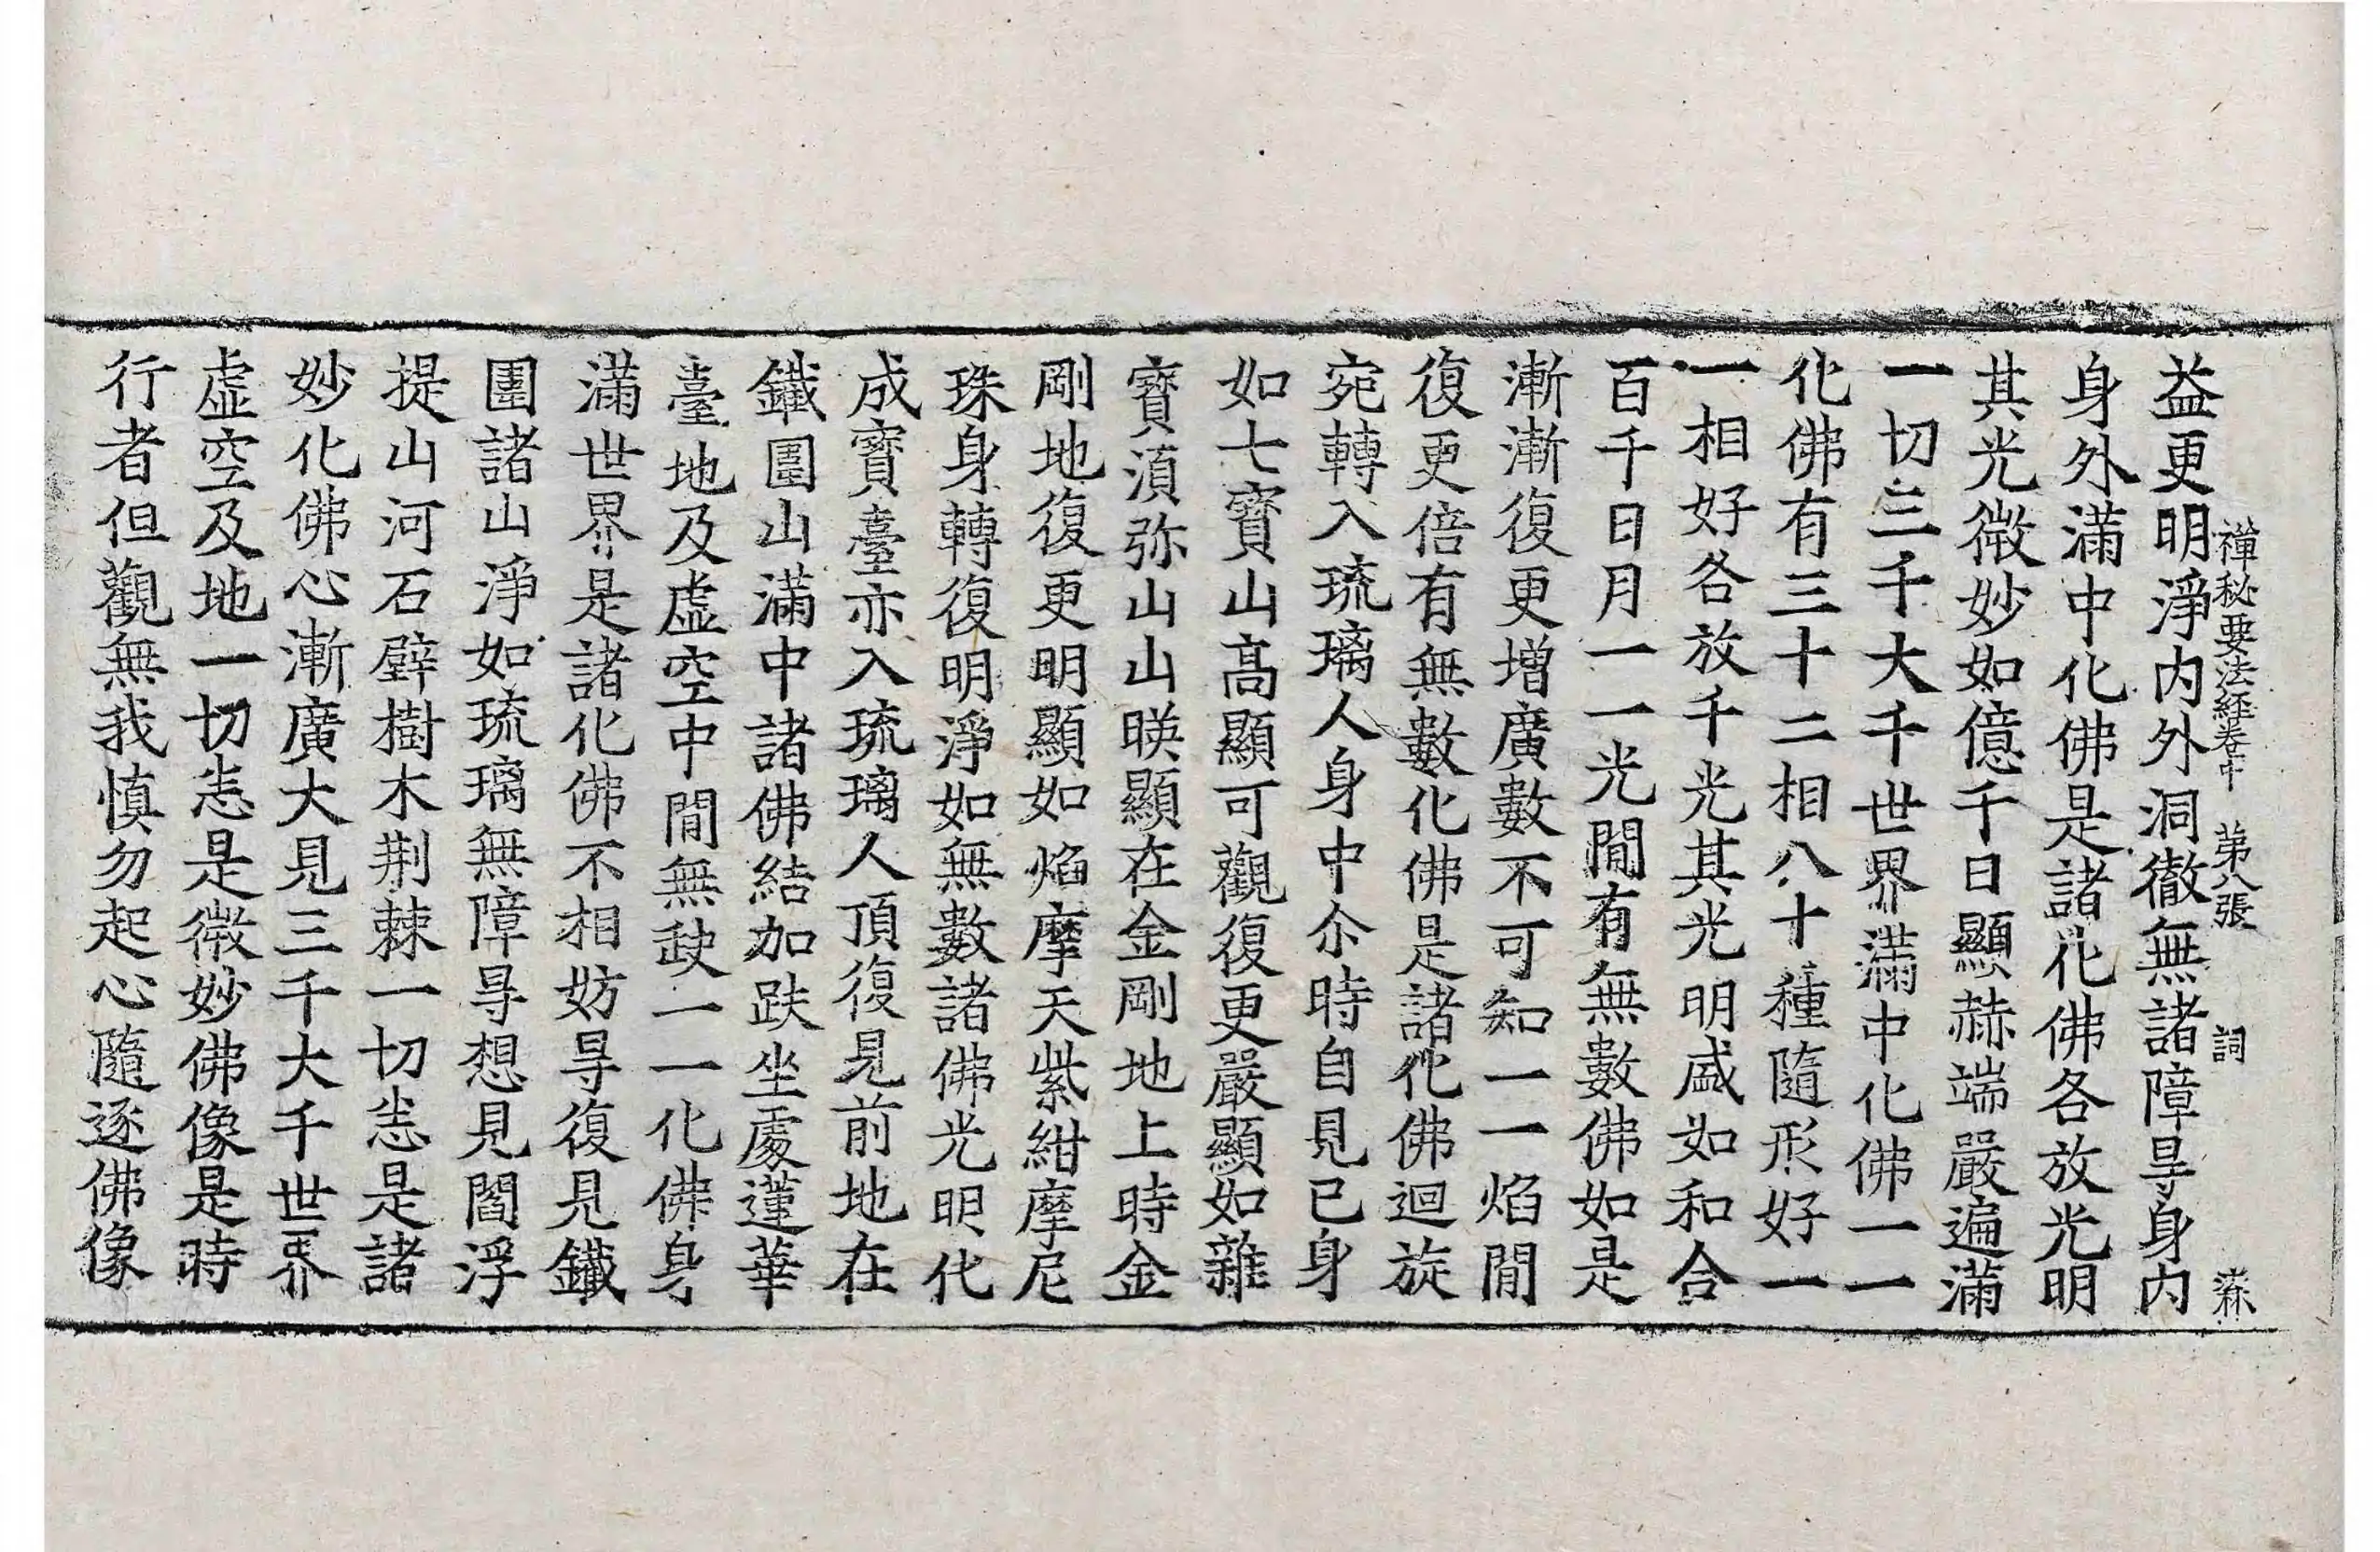 禪秘要法經卷中　第八張　詞　森
益更明淨内外洞徹無諸障㝵身内
身外滿中化佛是諸化佛各放光明
其光微妙如億千日顯赫端嚴遍滿
一切三千大千世界滿中化佛一一
化佛有三十二相八十種隨形好一
一相好各放千光其光明盛如和合
百千日月一一光間有無數佛如是
漸漸復更增廣數不可知一一焰間
復更倍有無數化佛是諸化佛迴旋
宛轉入琉璃人身中尒時自見已身
如七寶山高顯可觀復更嚴顯如雜
寶湏弥山山暎顯在金剛地上時金
剛地復更明顯如焰摩天紫紺摩尼
珠身轉復明淨如無數諸佛光明化
成寶臺亦入琉璃人頂復見前地在
鐵圍山滿中諸佛結加趺坐處蓮華
臺地及虛空中間無𡙇一一化佛身
滿世界是諸化佛不相妨㝵復見鐵
圍諸山淨如琉璃無障㝵想見閻浮
提山河石壁樹木荆棘一切恙是諸
妙化佛心漸廣大見三千大千世界
虛空及地一切恙是微妙佛像是時
行者但觀無我慎勿起心隨逐佛像